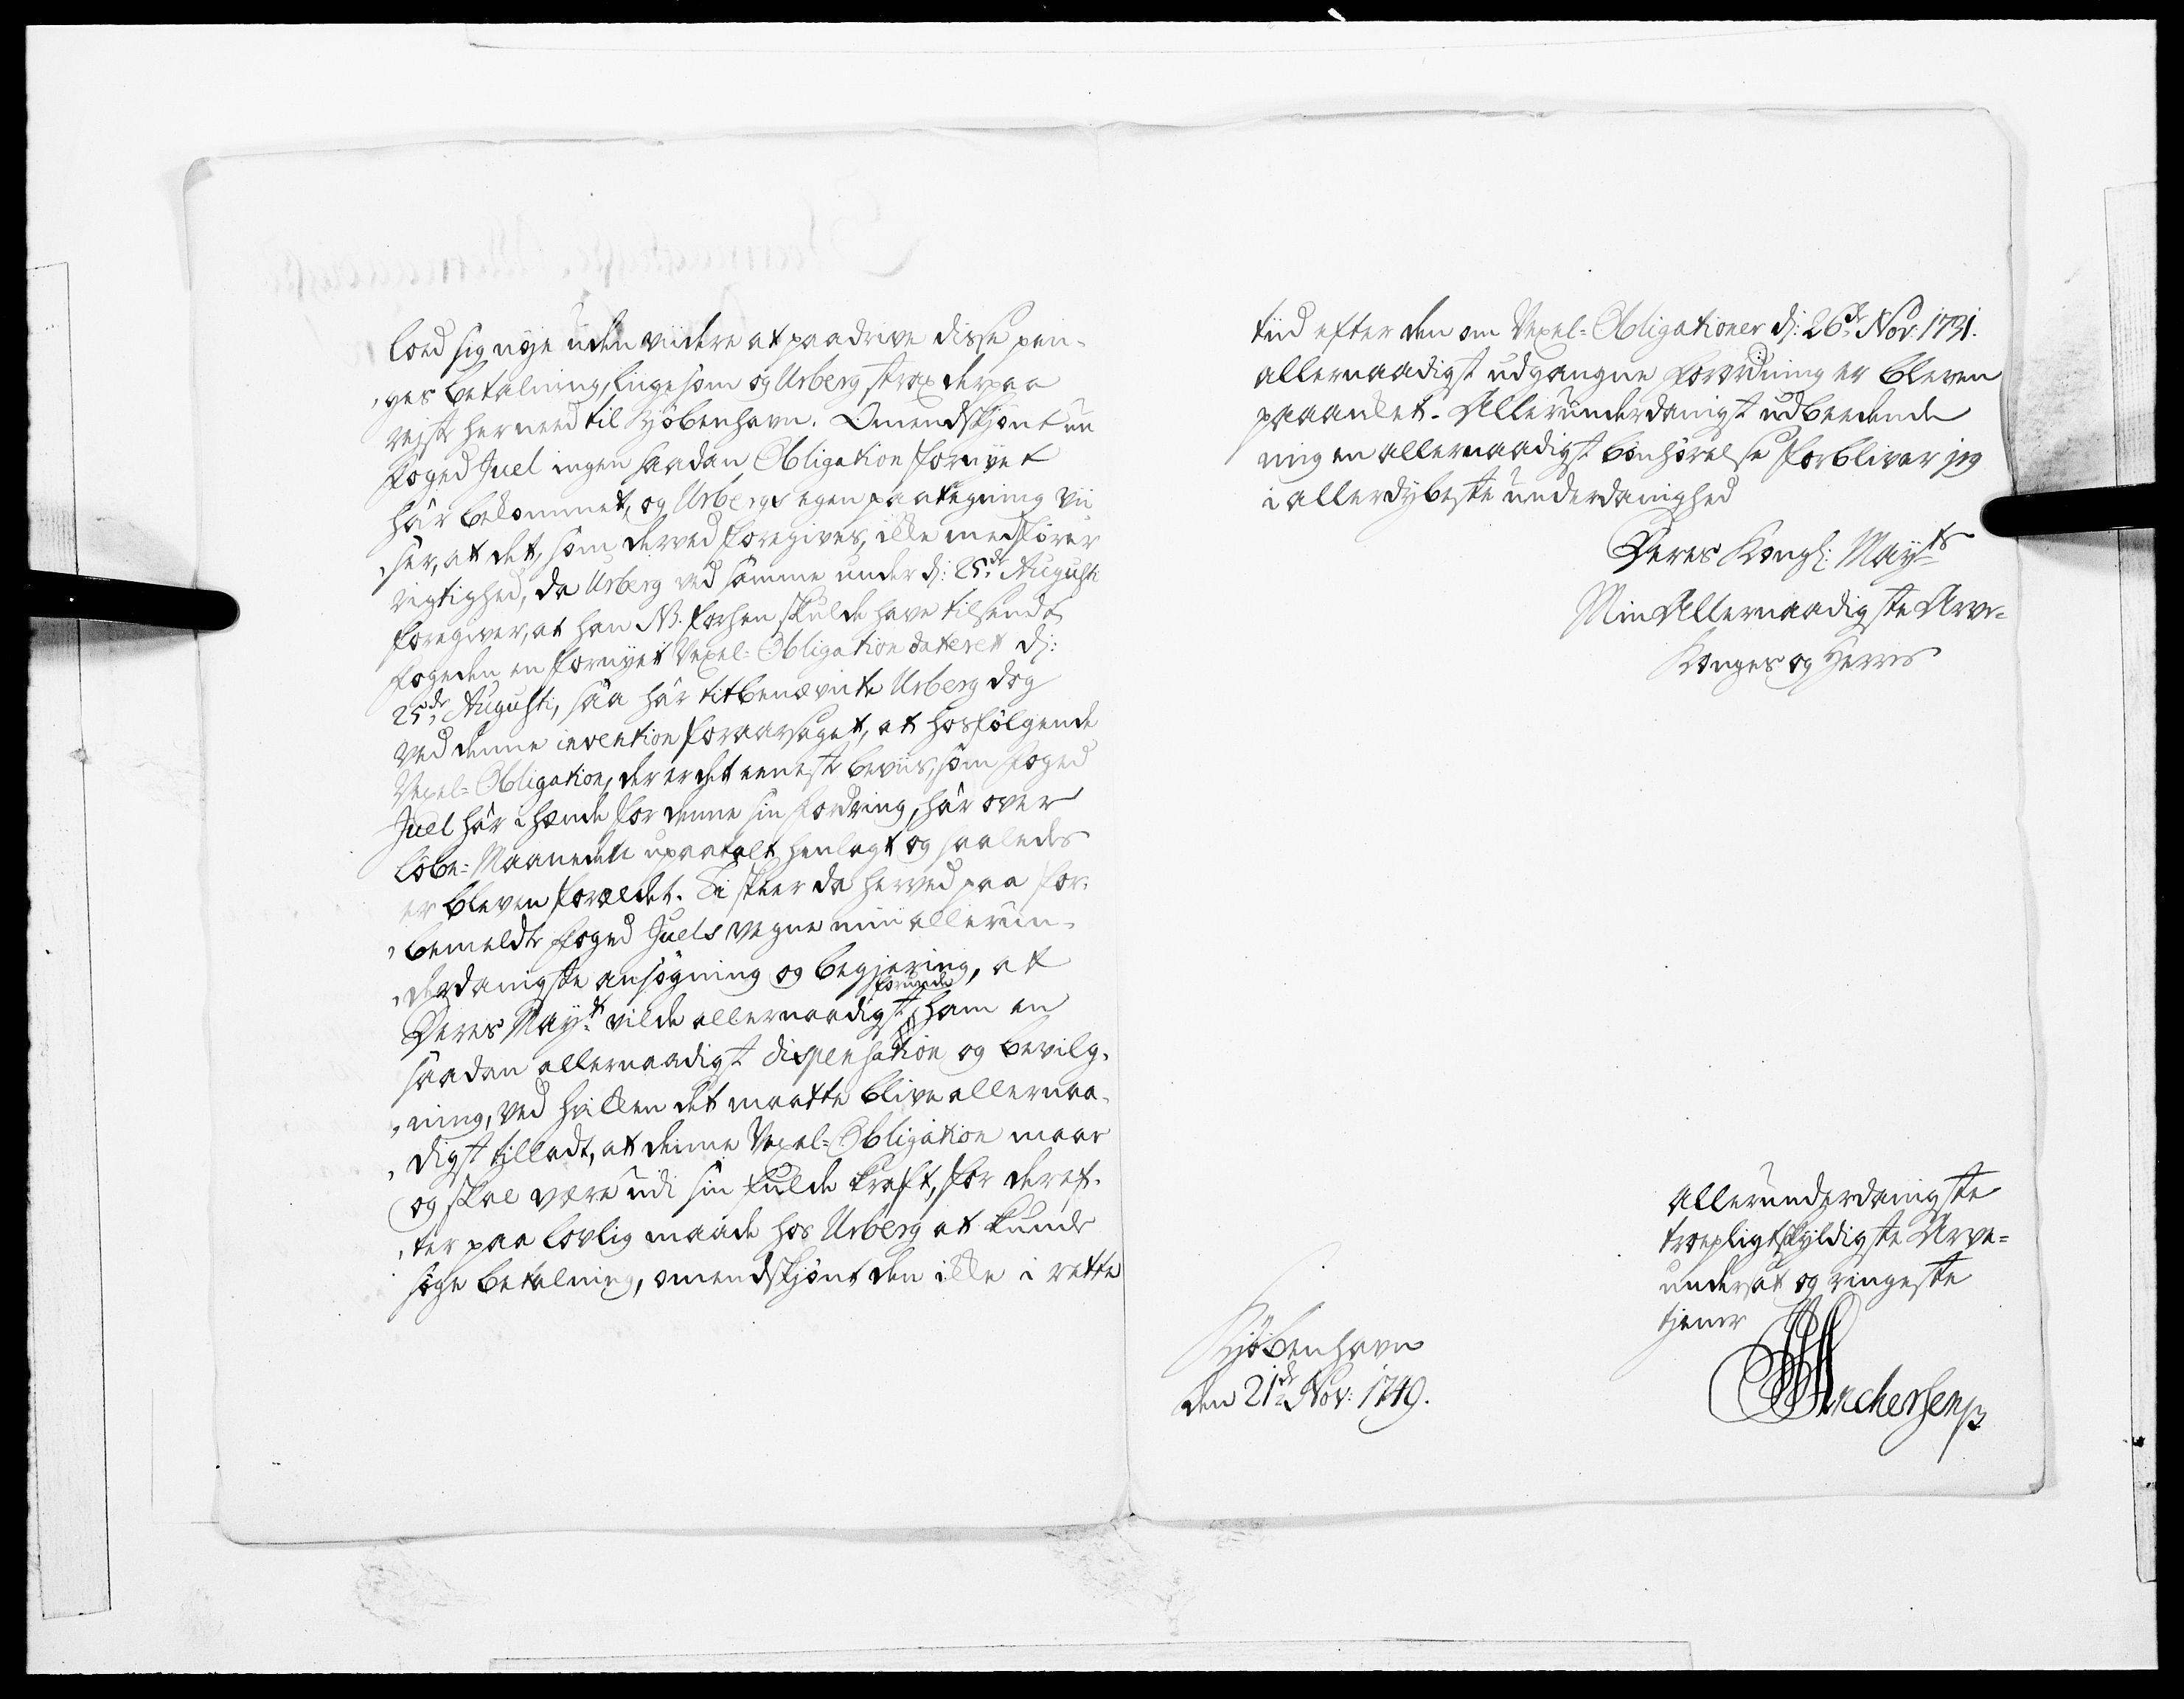 loed sig nøje uden viidere at paadrive disse pen-
ges betalning, liige som og Urberg strax derpaa
reiste her need til Kjøbenhavn. Omendskjønt nu
foged Juel ingen saadan Obligation fornyet
har bekommet, og Urbergs egen paategning vii
ser, at det, som derved foregives, ikke medfører
rigtighed, da Urberg ved samme under d: 25de Augusti
foregiver, at han NB. forhen skulde have tilsendt
fogeden en fornyet Vexel-Obligation dateret d:
25de Augusti, saa har titbenævnte Urberg dog
ved denne invention foraarsaget, at hosfølgende
Vexel-Obligation, der er det eeneste beviis, som foged
Juel har i hænde for denne sin fordring, har over
løbe-Maaneden upaatalt henlagt og saaledes
er bleven forældet. Di skeer da herved paa for-
bemeldte foged Juels vegne min allerun-
derdanigste ansøgning og begjering, at
Deres Mayt: vilde allernaadigst forunde ham en
saadan allernaadigst dispensation og bevilg-
ning, ved hvilken det maatte blive allernaa-
digst tilladt, at denne Vexel-Obligation maae
og skal være udi sin fulde kraft, for deref-
ter paa lovlig maade hos Urberg at kunde
søge betalning, omendskjønt den ikke i rette
tiid efter den om Vexel-Obligationer d: 26de Nov: 1731.
allernaadigst udgangne forordning er bleven
paaanket. Allerunderdanigst udbeedende
mig en allernaadigst bønhørelse forbliver jeg
i allerdybeste underdanighed
Deres Kongl: Mayts
Min Allernaadigste Arve-
Konges og Herres
Allerunderdanigste
troepligtskyldigste Arve-
undersat og ringeste
tjener
Kjøbenhavn
den 21de Nov: 1749.